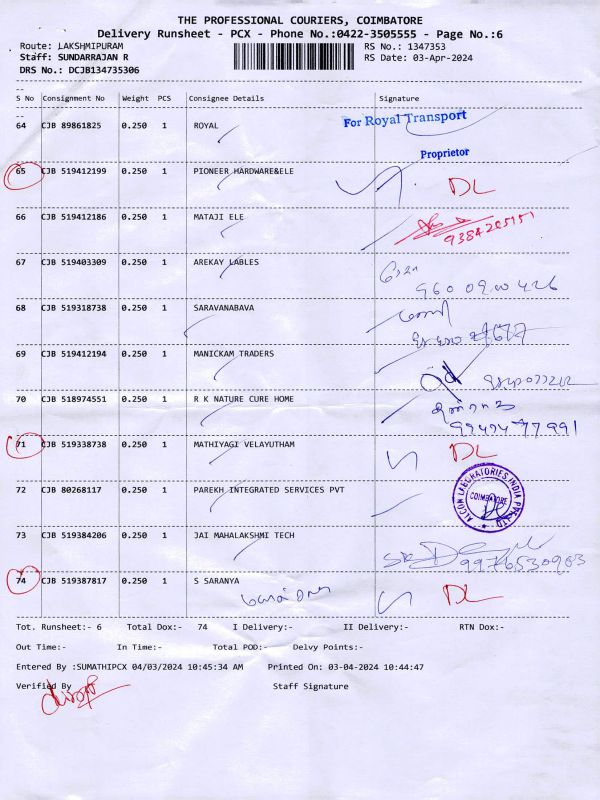 THE PROFESSIONAL COURIERS, COIMBATORE
Delivery Runsheet - PCX - Phone No.:0422-3505555 - Page No.:6
Route: LAKSHMIPURAM RS No.: 1347353
Staff: SUNDARRAJAN R RS Date: 03-Apr-2024
DRS No.: DCJB134735306
S No Consignment No Weight PCS Consignee Details Signature
64 CJB 89861825 0.250 1 ROYAL For Royal Transport
Proprietor
65 CJB 519412199 0.250 1 PIONEER HARDWARE&ELE DL
66 CJB 519412186 0.250 1 MATAJI ELE
9384205151
67 CJB 519403309 0.250 1 AREKAY LABLES
68 CJB 519318738 0.250 1 SARAVANABAVA
69 CJB 519412194 0.250 1 MANICKAM TRADERS
70 CJB 518974551 0.250 1 R K NATURE CURE HOME
71 CJB 519338738 0.250 1 MATHIYAGI VELAYUTHAM DL
72 CJB 80268117 0.250 1 PAREKH INTEGRATED SERVICES PVT ALCON LABORATORIES INDIA PVT. LTD COIMBATORE
73 CJB 519384206 0.250 1 JAI MAHALAKSHMI TECH
9976530903
74 CJB 519387817 0.250 1 S SARANYA DL
Tot. Runsheet:- 6 Total Dox:- 74 I Delivery:- II Delivery:- RTN Dox:-
Out Time:- In Time:- Total POD:- Delvy Points:-
Entered By :SUMATHIPCX 04/03/2024 10:45:34 AM Printed On: 03-04-2024 10:44:47
Verified By Staff Signature